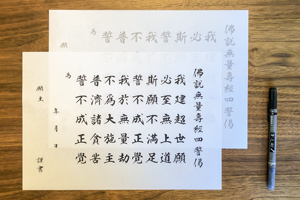 佛説無量壽經四誓偈
我
必
斯
誓
我
不
普
誓
為
願主
佛説無量壽經四誓偈
我建超世願
必至無上道
斯願不満足
誓不成正覺
我於無量劫
不為大施主
普濟諸貧苦
誓不成正覺
為
年 月 日
願主 謹書